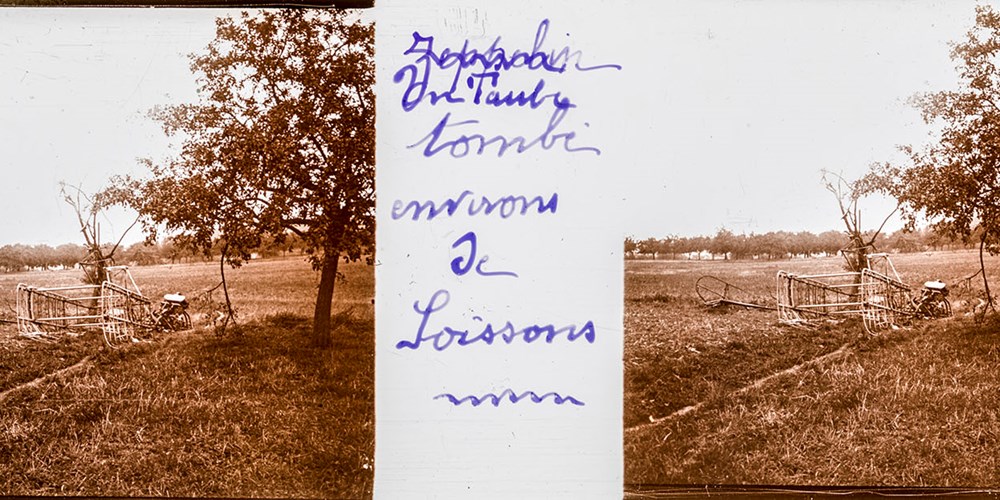 Zeppelin
Un Taube
tombé
environs
de
Soissons